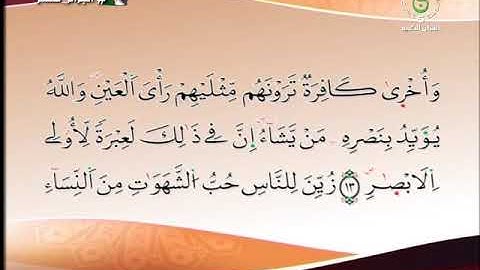 وَأُخْرَىٰ كَافِرَةٌ تَرَوْنَهُم مِّثْلَيْهِمْ رَأْىَ اَلْعَيْنِ وَاللَّهُ
يُوَيِّدُ بِنَصْرِهِ مَنْ يَّشَآءُ اِنَّ فِے ذَٰلِكَ لَعِبْرَةً لِّأُوْلِے
اِلَابْصٰرِ ١٣ زُيِّنَ لِلنَّاسِ حُبُّ الشَّهَوَٰتِ مِنَ اَلنِّسَآءِ